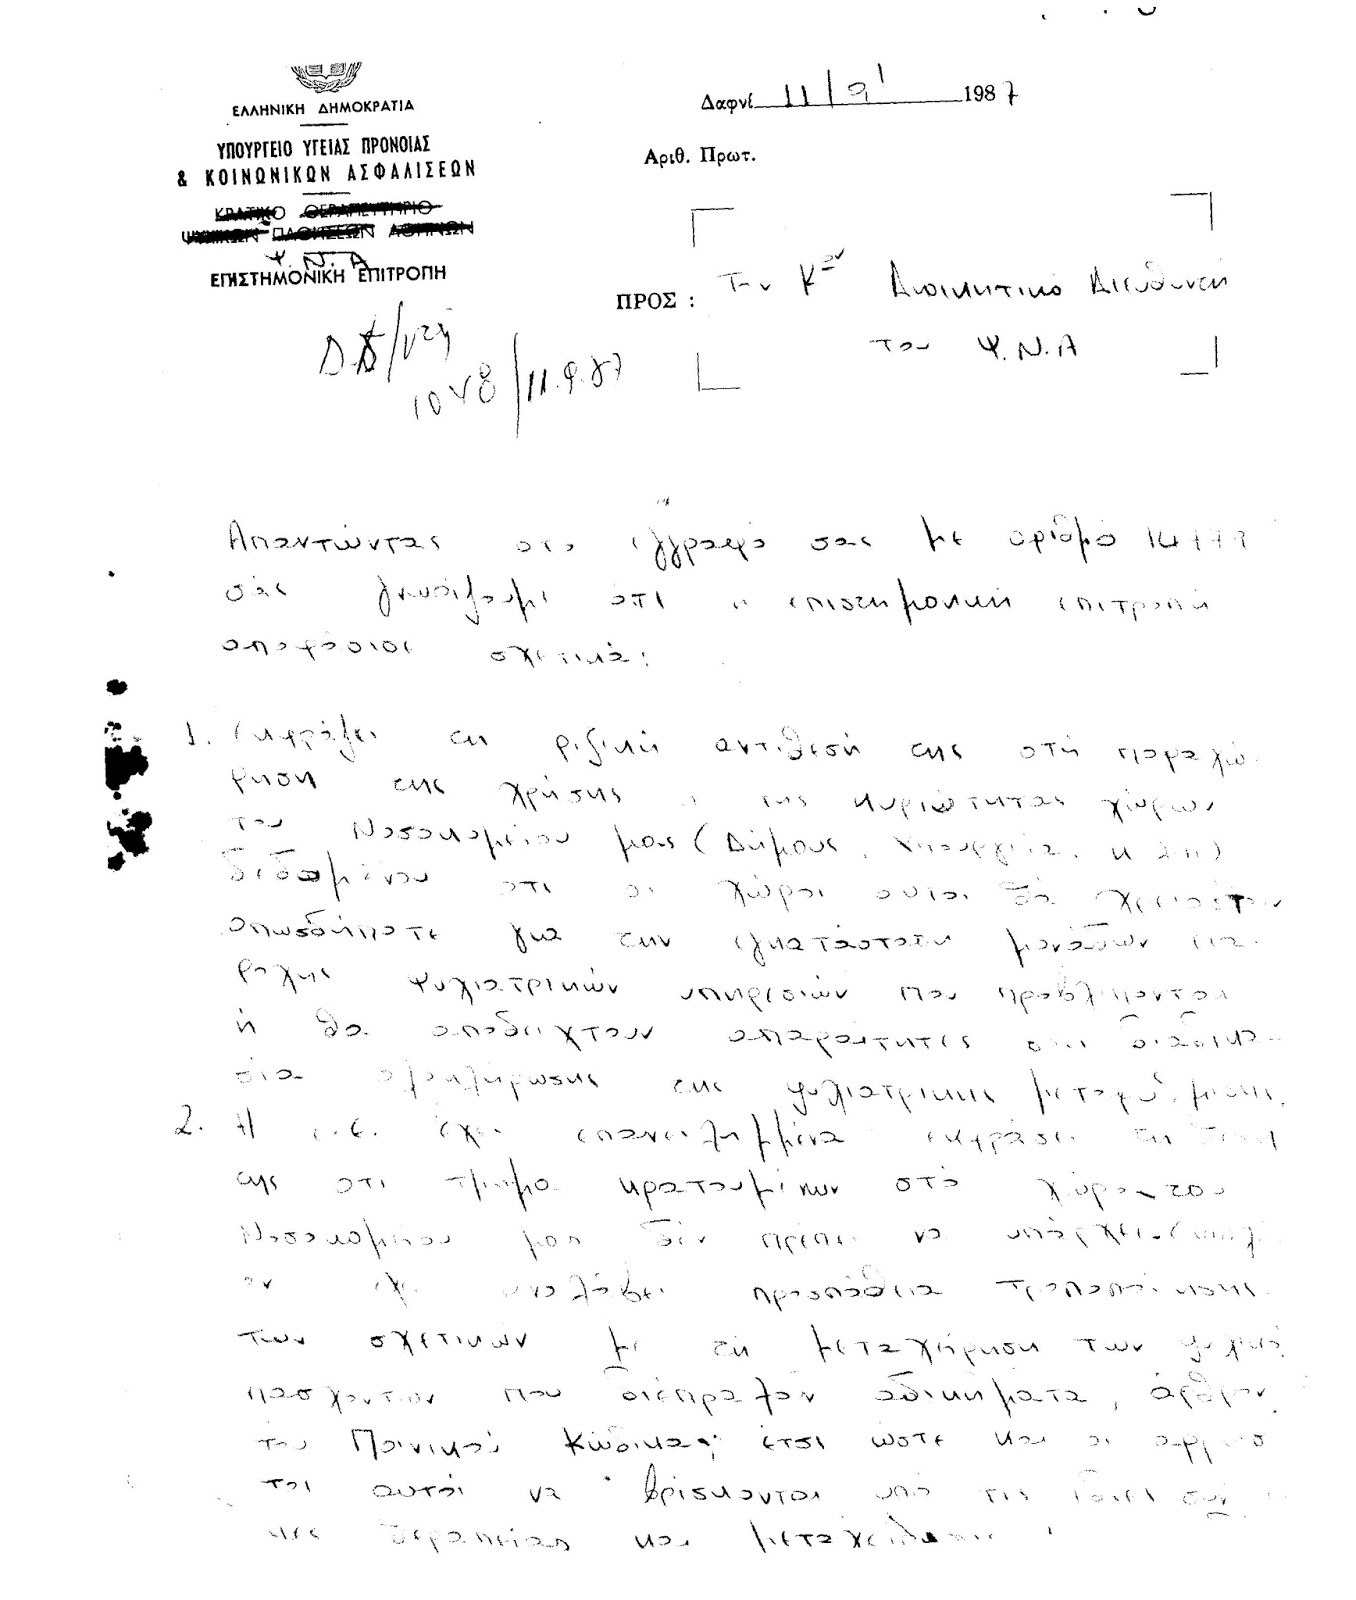 ΕΛΛΗΝΙΚΗ ΔΗΜΟΚΡΑΤΙΑ
ΥΠΟΥΡΓΕΙΟ ΥΓΕΙΑΣ ΠΡΟΝΟΙΑΣ
& ΚΟΙΝΩΝΙΚΩΝ ΑΣΦΑΛΙΣΕΩΝ
ΚΡΑΤΙΚΟ ΘΕΡΑΠΕΥΤΗΡΙΟ
ΨΥΧΙΚΩΝ ΠΑΘΗΣΕΩΝ ΑΘΗΝΩΝ
Ψ.Ν.Α
ΕΠΙΣΤΗΜΟΝΙΚΗ ΕΠΙΤΡΟΠΗ
Δαφνί 11/9 1987
Αριθ. Πρωτ.
ΠΡΟΣ : Τον Κον Διοικητικό Διευθυντή
του Ψ.Ν.Α
11.9.87
Απαντώντας στο έγγραφό σας με αριθμό
σάς γνωρίζουμε ότι η επιστημονική επιτροπή
αποφάσισε σχετικά:
1. Εκφράζει τη ριζική αντίθεσή της στή παραχώ-
ρηση της χρήσης ή της κυριότητας χώρων
του Νοσοκομείου μας (Δήμους, Υπουργεία, κλπ)
δεδομένου ότι οι χώροι αυτοί θα χρειαστούν
οπωσδήποτε για την εγκατάσταση μονάδων πα-
ροχής ψυχιατρικών υπηρεσιών που προβλέπονται
ή θα αποδειχτούν απαραίτητες στη διαδικα-
σία ολοκλήρωσης της ψυχιατρικής μεταρρύθμισης.
2. Η ε.ε. έχει επανειλημμένα εκφράσει τη θέση
της ότι τμήμα κρατουμένων στό χώρο του
Νοσοκομείου μας δέν πρέπει να υπάρχει
έχει αναλάβει προσπάθεια τροποποίησης
των σχετικών με τη μεταχείρηση των ψυχικά
πασχόντων που διέπραξαν αδικήματα, άρθρων
του Ποινικού Κώδικα, έτσι ώστε και οι άρρωσ
τοι αυτοί να βρίσκονται υπό τις ίδιες συν
θεραπείας και